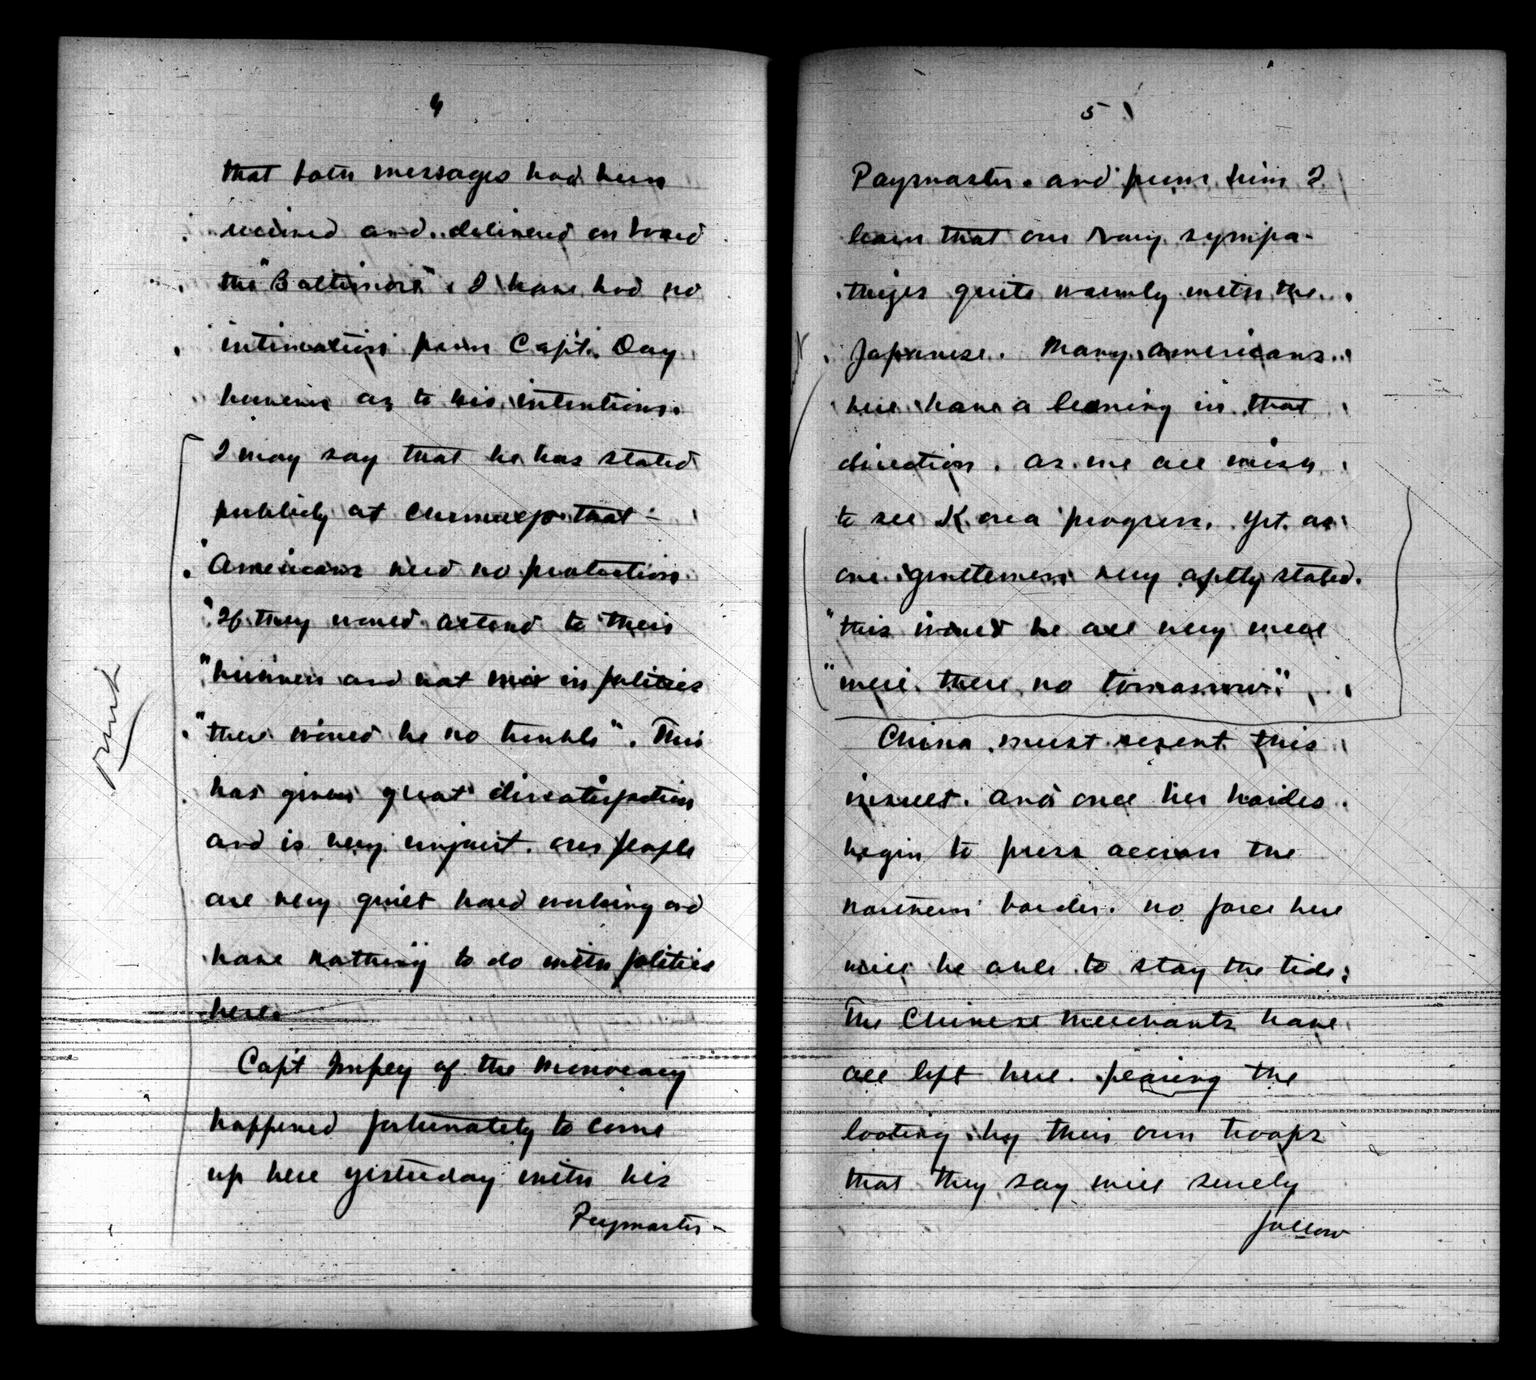 4
that both messages had been
received and delivered on board
the "Baltimore". I have had no
intimation from Capt. Day
however as to his intentions.
I may say that he has stated
publicly at Chemulpo that -
"Americans need no protection.
"If they would attend to their
"business and not mix in politics
"there would be no trouble". This
has given great dissatisfaction
and is very unjust. Our people
are very quiet hard working and
have nothing to do with politics
here.
Capt Impey of the Monocacy
happened fortunately to come
up here yesterday with his
Paymaster -
5
Paymaster. and from him I
learn that our Navy sympa-
thizes quite warmly with the
Japanese. Many Americans
here have a leaning in that
direction. as we all wish
to see Korea progress. Yet as
one gentleman very aptly stated.
"this would be all very well
"were there no tomorrow".
China must resent this
insult. and once her hordes
begin to press across the
northern border. no force here
will be able to stay the tide.
The Chinese Merchants have
all left here. fearing the
looting by their own troops
that they say will surely
follow